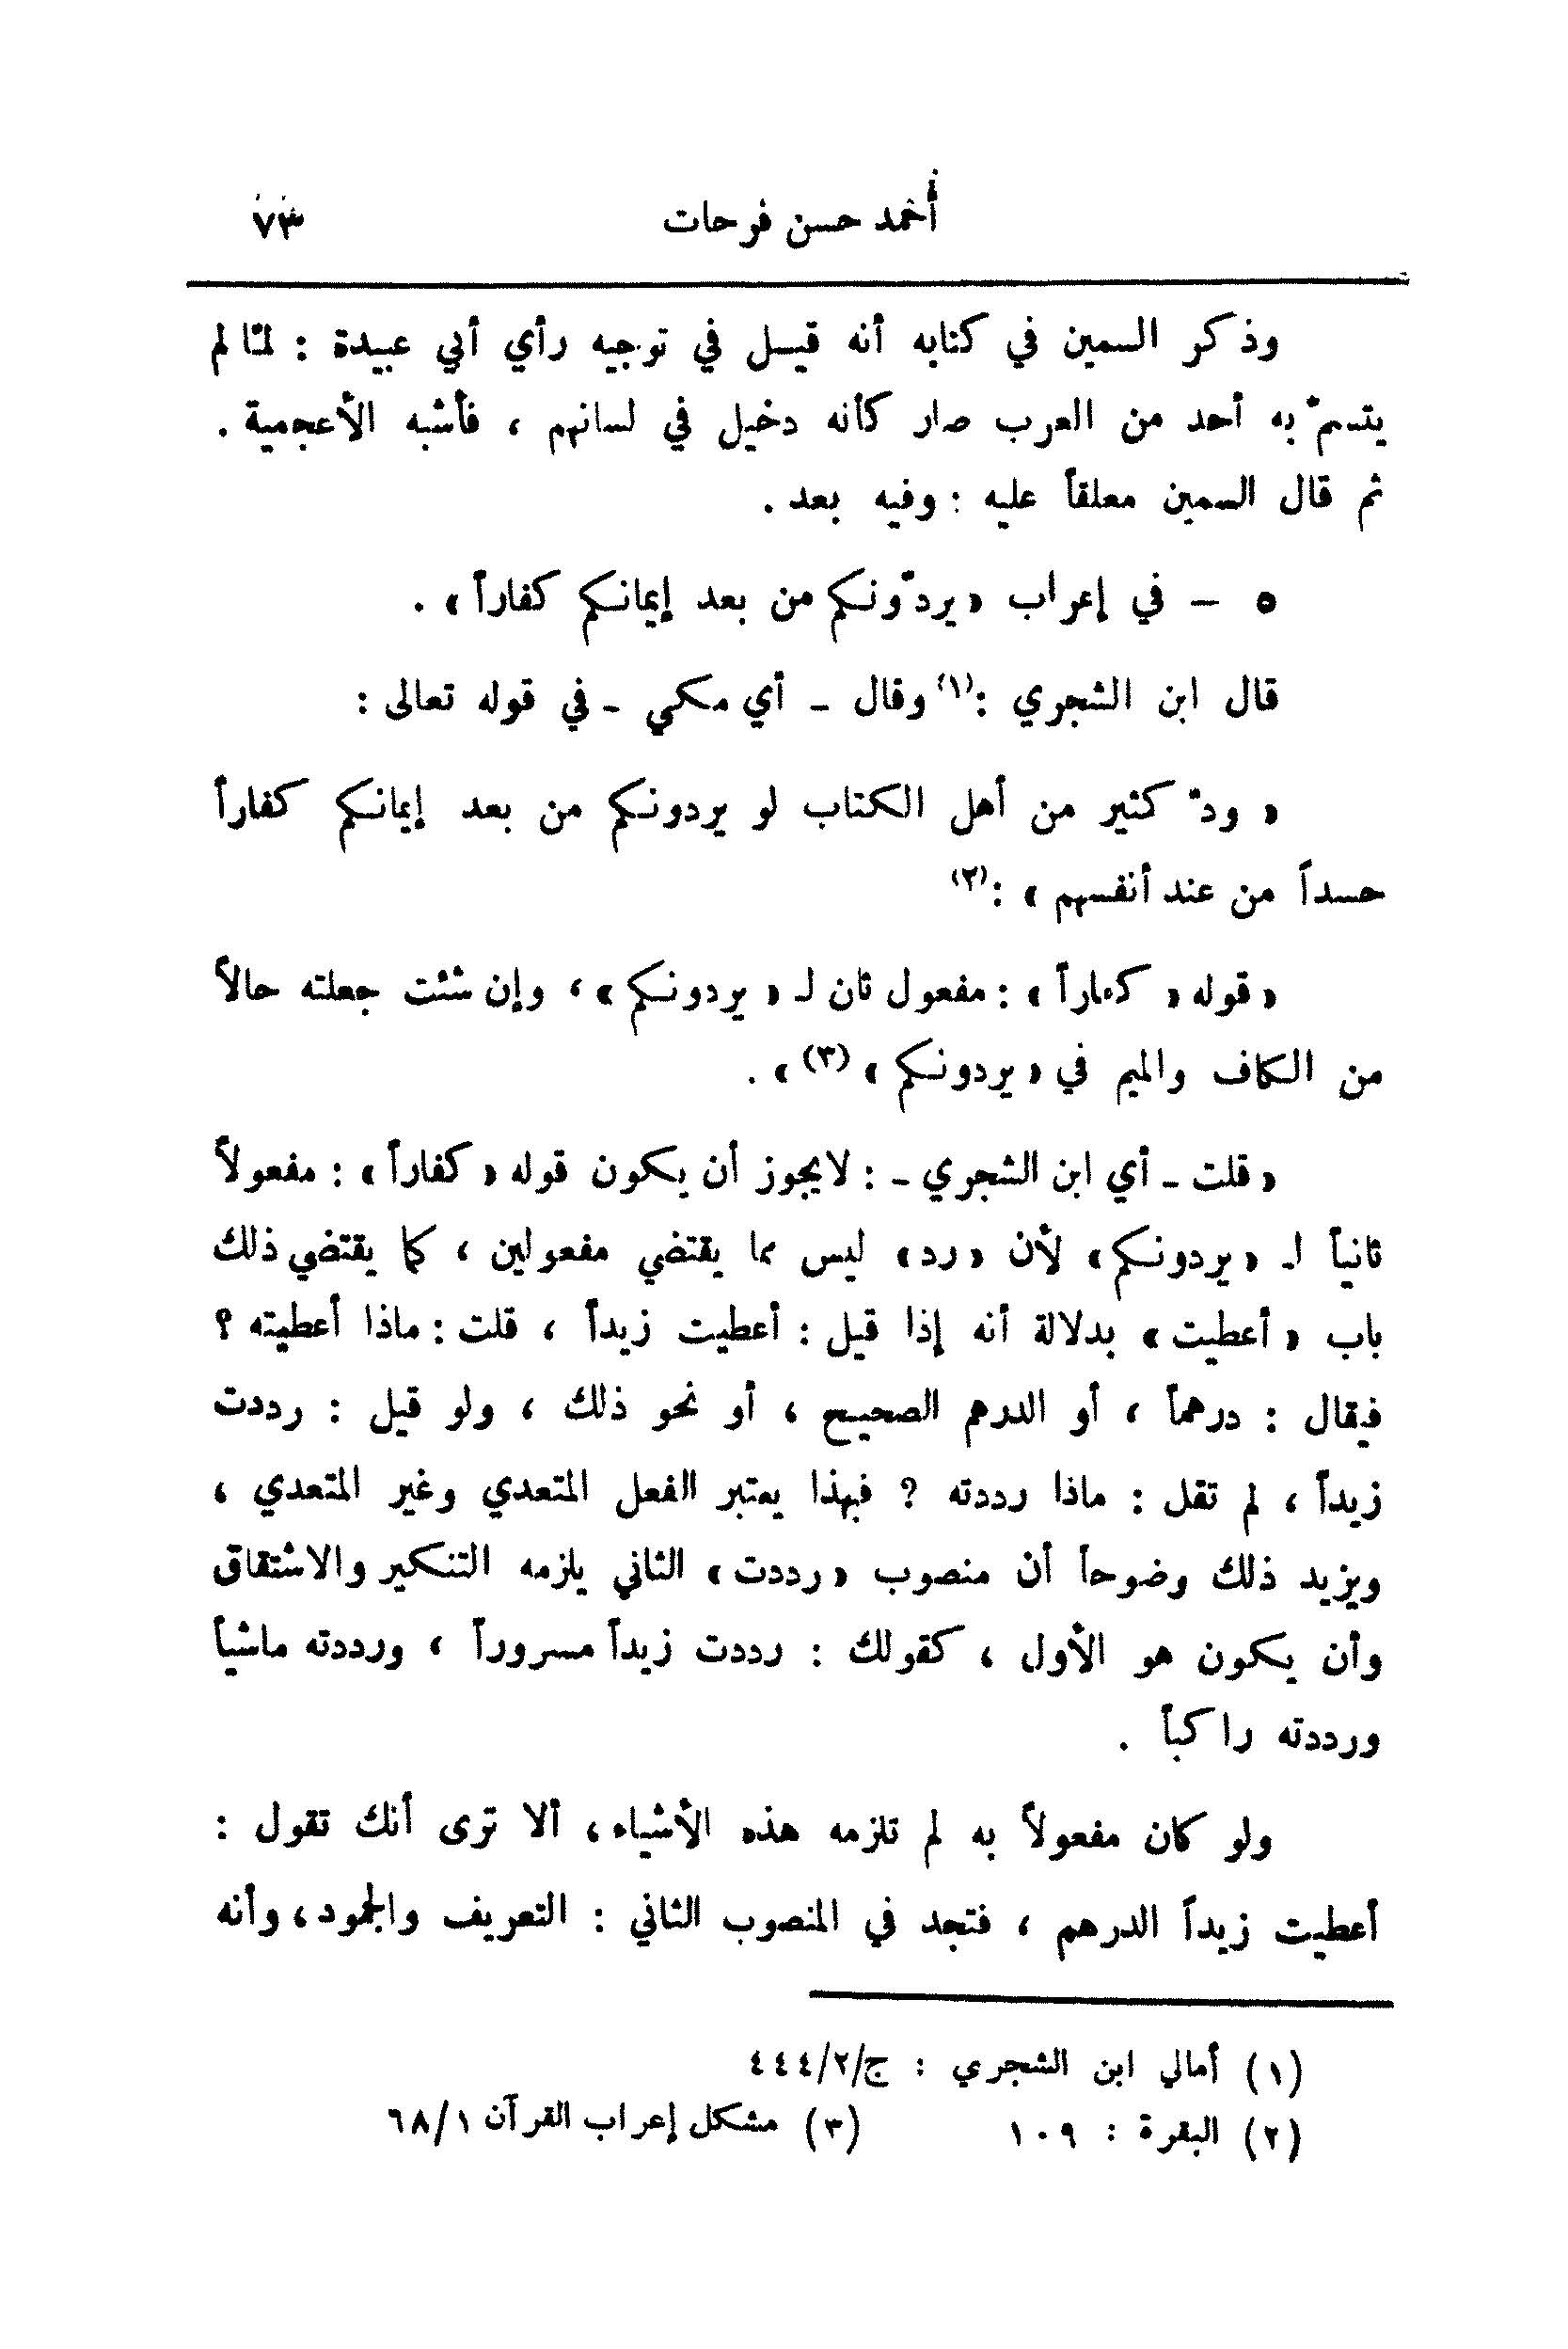 أحمد حسن فرحات ٧٣
وذكر السمين في كتابه أنه قيل في توجيه رأي أبي عبيدة : لمّا لم
يتسمّ به أحد من العرب صار كأنه دخيل في لسانهم ، فأشبه الأعجمية .
ثم قال السمين معلقاً عليه : وفيه بعد .
٥ – في إعراب « يردّونكم من بعد إيمانكم كفاراً » .
قال ابن الشجري :(١) وقال – أي مكي – في قوله تعالى :
« ودّ كثير من أهل الكتاب لو يردونكم من بعد إيمانكم كفاراً
حسداً من عند أنفسهم » :(٢)
« قوله « كفاراً » : مفعول ثان لـ « يردونكم » ، وإن شئت جعلته حالاً
من الكاف والميم في « يردونكم » (٣) » .
« قلت – أي ابن الشجري – : لايجوز أن يكون قوله « كفاراً » : مفعولاً
ثانياً لـ « يردونكم » لأن « رد » ليس مما يقتضي مفعولين ، كما يقتضي ذلك
باب « أعطيت » بدلالة أنه إذا قيل : أعطيت زيداً ، قلت : ماذا أعطيته ؟
فيقال : درهماً ، أو الدرهم الصحيح ، أو نحو ذلك ، ولو قيل : رددت
زيداً ، لم تقل : ماذا رددته ؟ فبهذا يعتبر الفعل المتعدي وغير المتعدي ،
ويزيد ذلك وضوحاً أن منصوب « رددت » الثاني يلزمه التنكير والاشتقاق
وأن يكون هو الأول ، كقولك : رددت زيداً مسروراً ، ورددته ماشياً
ورددته راكباً .
ولو كان مفعولاً به لم تلزمه هذه الأشياء ، ألا ترى أنك تقول :
أعطيت زيداً الدرهم ، فتجد في المنصوب الثاني : التعريف والجمود ، وأنه
(١) أمالي ابن الشجري : ج/٢/٤٤٤
(٢) البقرة : ١٠٩ (٣) مشكل إعراب القرآن ٦٨/١